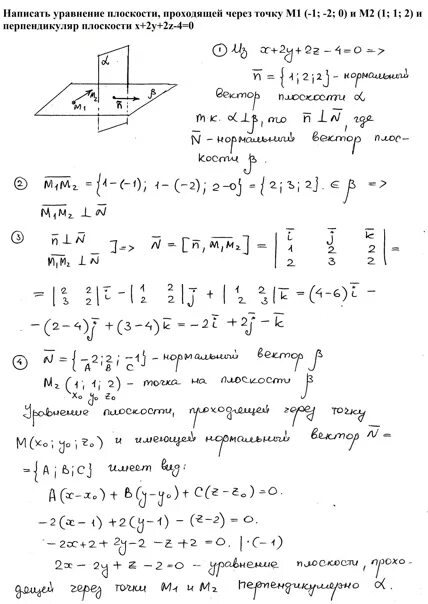 Написать уравнение плоскости, проходящей через точку M1 (-1; -2; 0) и M2 (1; 1; 2) и
перпендикуляр плоскости x+2y+2z-4=0
α
M₁ M₂ n̄ β
① Из x+2y+2z-4=0 =>
n̄ = {1; 2; 2} - нормальный
вектор плоскости α
т.к. α⊥β, то n̄ ⊥ N̄, где
N̄ - нормальный вектор плос-
кости β.
② M₁M₂ = {1-(-1); 1-(-2); 2-0} = {2; 3; 2}. ∈ β =>
M₁M₂ ⊥ N̄
③ n̄ ⊥ N̄
M₁M₂ ⊥ N̄ ] => N̄ = [n̄, M₁M₂] = | ī j̄ k̄ |
| 1 2 2 | =
| 2 3 2 |
= | 2 2 | ī - | 1 2 | j̄ + | 1 2 | k̄ = (4-6) ī -
| 3 2 | | 2 2 | | 2 3 |
- (2-4) j̄ + (3-4) k̄ = -2 ī + 2 j̄ - k̄
④ N̄ = {-2; 2; -1} - нормальный вектор β
A B C
M₂ (1; 1; 2) - точка на плоскости β
x₀ y₀ z₀
Уравнение плоскости, проходящей через точку
M(x₀; y₀; z₀) и имеющей нормальный вектор N̄ =
= {A; B; C} имеет вид:
A(x-x₀) + B(y-y₀) + C(z-z₀) = 0.
-2(x-1) + 2(y-1) - (z-2) = 0.
-2x+2 + 2y-2 -z +2 = 0. | ·(-1)
2x - 2y + z - 2 = 0 - уравнение плоскости, прохо-
дящей через точки M₁ и M₂ перпендикулярно α.